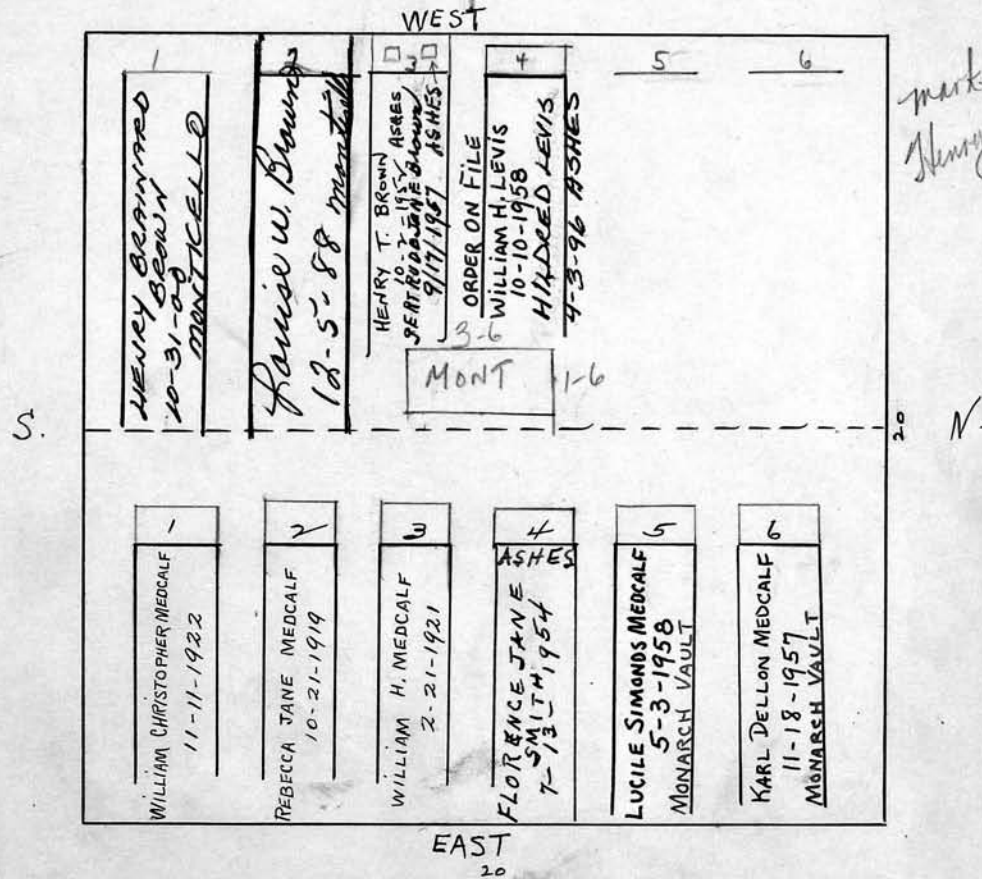 WEST
1
HENRY BRAINNARD
BROWN
10-31-00
MONTICELLO
Louise W. Brown
12-5-88 Monticello
3
HENRY T. BROWN
10-2-1952 ASHES
9/17/1957 ASHES
ORDER ON FILE
4
WILLIAM H. LEVIS
10-10-1958
HILDRED LEVIS
4-3-96 ASHES
5
6
mark
Henry
3-6
MONT
1-6
S.
20
N
1
WILLIAM CHRISTOPHER MEDCALF
11-11-1922
2
REBECCA JANE MEDCALF
10-21-1919
3
WILLIAM H. MEDCALF
2-21-1921
4
ASHES
FLORENCE JANE
SMITH
7-13-1954
5
LUCILE SIMONDS MEDCALF
5-3-1958
MONARCH VAULT
6
KARL DELLON MEDCALF
11-18-1957
MONARCH VAULT
EAST
20